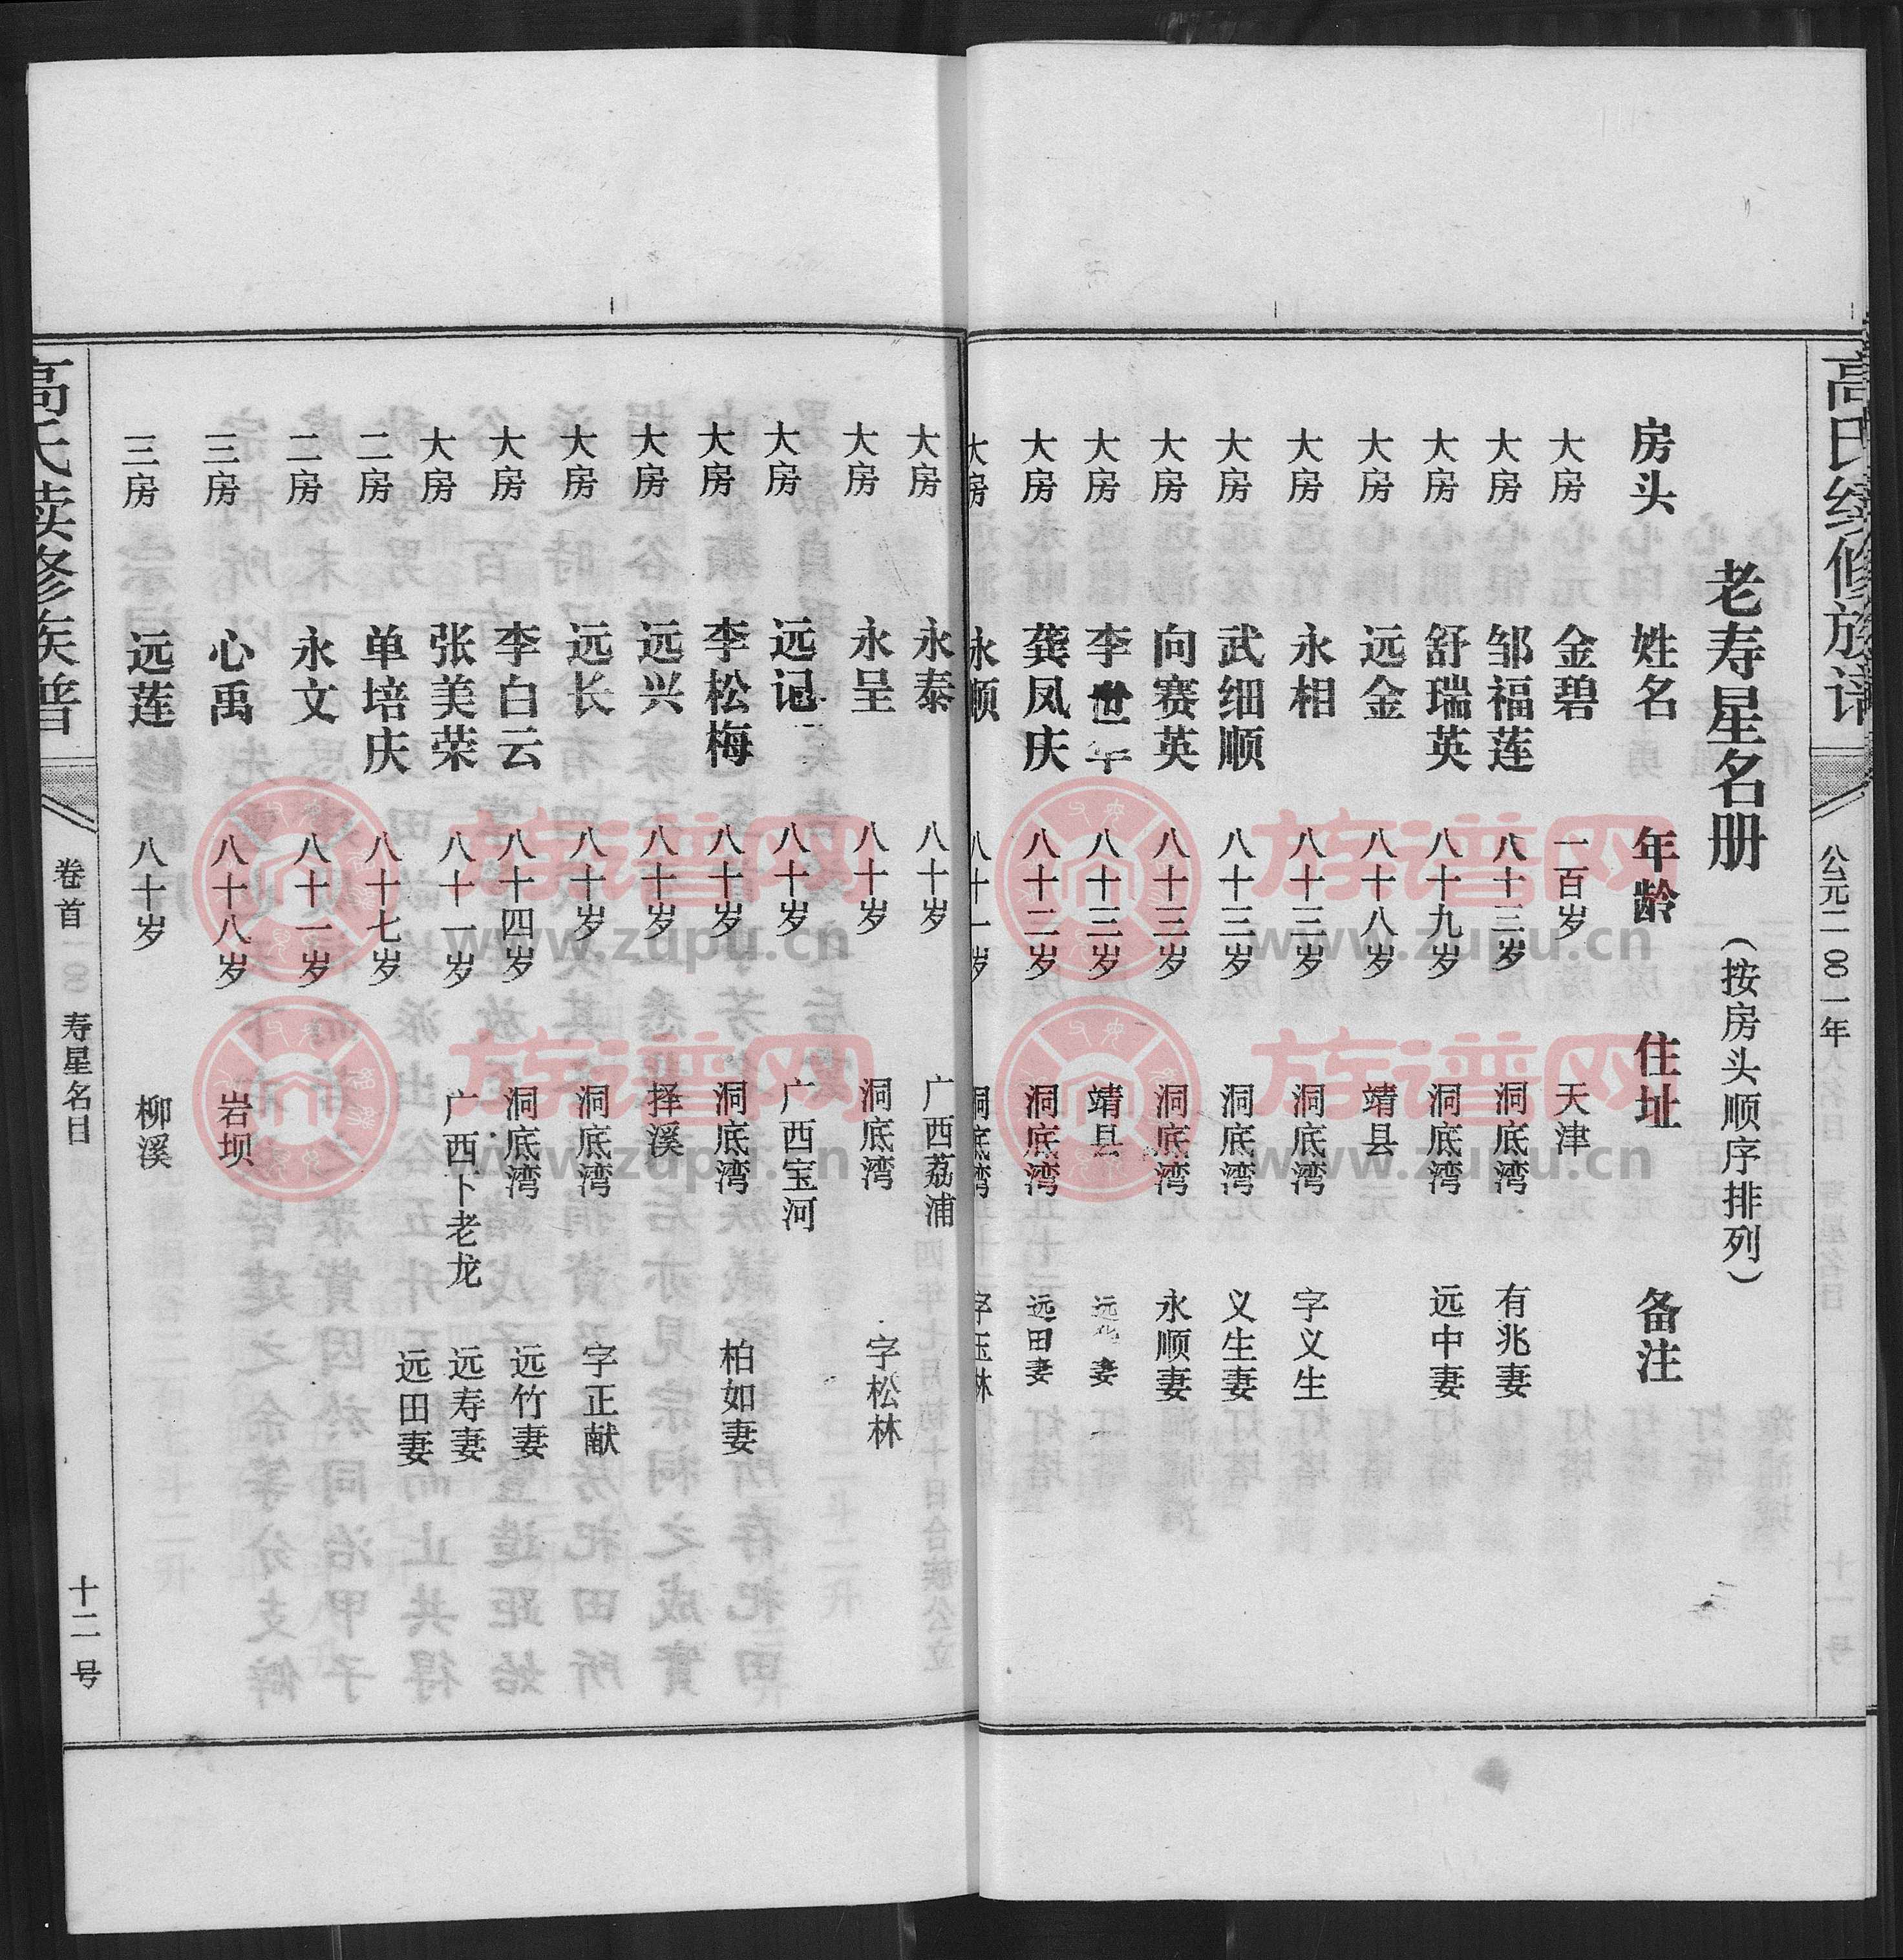 高氏续修族谱
公元二〇〇一年
老寿星名册（按房头顺序排列）
房头 姓名 年龄 住址 备注
大房 金碧 一百岁 天津
大房 邹福莲 八十三岁 洞底湾 有兆妻
大房 舒瑞英 八十九岁 洞底湾 远中妻
大房 远金 八十八岁 靖县
大房 永相 八十三岁 洞底湾 字义生
大房 武细顺 八十三岁 洞底湾 义生妻
大房 向赛英 八十三岁 洞底湾 永顺妻
大房 李世 八十三岁 靖县 远 妻
大房 龚凤庆 八十二岁 洞底湾 远田妻
大房 永顺 八十一岁 洞底湾 字玉林
大房 永泰 八十岁 广西荔浦
大房 永呈 八十岁 洞底湾 字松林
大房 远记 八十岁 广西宝河
大房 李松梅 八十岁 洞底湾 柏如妻
大房 远兴 八十岁 择溪
大房 远长 八十岁 洞底湾 字正献
大房 李白云 八十四岁 洞底湾 远竹妻
大房 张美荣 八十一岁 广西卜老龙 远寿妻
二房 单培庆 八十七岁 远田妻
二房 永文 八十一岁
三房 心禹 八十八岁 岩坝
三房 远莲 八十岁 柳溪
高氏续修族谱
卷首
寿星名目
十二号
族谱网
www.zupu.cn
族谱网
www.zupu.cn
族谱网
www.zupu.cn
族谱网
www.zupu.cn